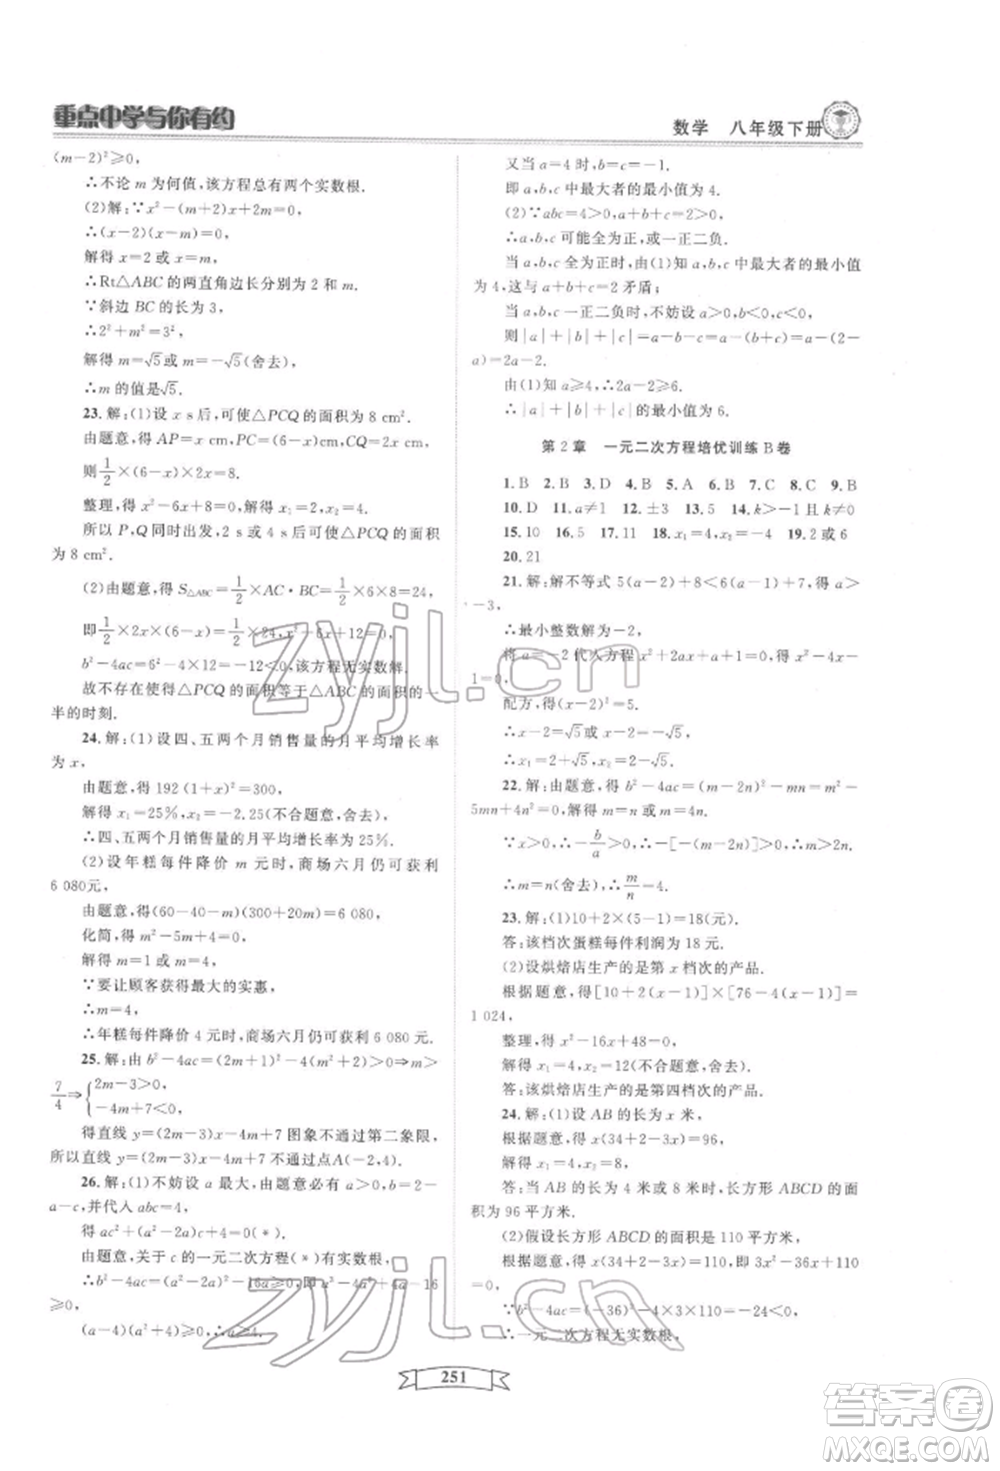 重点中学与你有约
数学 八年级下册
(m-2)²≥0,
∴不论 m 为何值,该方程总有两个实数根.
(2)解:∵x²-(m+2)x+2m=0,
∴(x-2)(x-m)=0,
解得 x=2 或 x=m,
∴Rt△ABC 的两直角边长分别为 2 和 m.
∵斜边 BC 的长为 3,
∴2²+m²=3²,
解得 m=√5或-√5(舍去).
∴m 的值是√5.
23.解:(1)设 x s后,可使△PCQ 的面积为 8 cm².
由题意,得 AP=x cm,PC=(6-x) cm,CQ=2x cm,
则1/2×(6-x)×2x=8.
整理,得 x²-6x+8=0,解得 x₁=2,x₂=4.
所以 P,Q 同时出发,2 s 或 4 s 后可使△PCQ 的面积为
8 cm².
(2)由题意,得 S△ABC=1/2×AC·BC=1/2×6×8=24,
即1/2×(6-x)×2x=1/2×24,x²-6x+12=0,
b²-4ac=6²-4×12=-12<0,该方程无实数解.
故不存在使得△PCQ 的面积等于△ABC 的面积的一
半的时刻.
24.解:(1)设四、五两个月销售量的月平均增长率
为 x,
由题意,得 192(1+x)²=300,
解得 x₁=25%,x₂=-2.25(不合题意,舍去)
∴四、五两个月销售量的月平均增长率为 25%.
(2)设年糕每件降价 m 元时,商场六月仍可获利
6 080元,
由题意,得(60-40-m)(300+20m)=6 080,
化简,得 m²-5m+4=0,
解得 m=1 或 m=4,
∵要让顾客获得最大的实惠,
∴m=4,
∴年糕每件降价 4 元时,商场六月仍可获利 6 080元.
25.解:由 b²-4ac=(2m+1)²-4(m²+2)>0⇒m>
7/4⇒{2m-3>0,
-4m+7<0,
得直线 y=(2m-3)x-4m+7 图象不通过第二象限,
所以直线 y=(2m-3)x-4m+7 不通过点A(-2,4).
26.解:(1)不妨设 a 最大,由题意必有 a>0,b=2-
a-c,并代入 abc=4,
得 ac²+(a²-2a)c+4=0(*)
由题意,关于 c 的一元二次方程(*)有实数根.
∴b²-4ac=(a²-2a)²-16a≥0,即 a³-4a²+4a-16
≥0,
(a-4)(a²+4)≥0,∵a²+4>0.∴a≥4.
又当 a=4 时,b=c=-1.
即 a,b,c 中最大者的最小值为 4.
(2)∵abc=4>0,a+b+c=2>0,
∴a,b,c 可能全为正,或一正二负.
当 a,b,c 全为正时,由(1)知 a,b,c 中最大者的最小值
为 4,这与 a+b+c=2 矛盾;
当 a,b,c 一正二负时,不妨设 a>0,b<0,c<0,
则 |a|+|b|+|c|=a-b-c=a-(2-
a)=2a-2.
由(1)知 a≥4,∴2a-2≥6.
∴|a|+|b|+|c|的最小值为 6.
第 2 章 一元二次方程培优训练 B 卷
1.B 2.B 3.B 4.B 5.A 6.C 7.C 8.C 9.B
10.D 11.a≠1 12.±3 13.5 14.k>-1且 k≠0
15.10 16.5 17.11 18.x₁=4,x₂=-4 19.2 或 6
20.21
21.解:解不等式 5(a-2)+8<6(a-1)+7,得 a>
-3,
∴最小整数解为-2,
将 a=-2 代入方程 x²+2ax+a+1=0,得 x²-4x-
1=0,
配方,得(x-2)²=5.
∴x-2=√5或 x-2=-√5.
∴x₁=2+√5,x₂=2-√5.
22.解:由题意,得 b²-4ac=(m-2n)²-mn=m²-
5mn+4n²=0,解得 m=n 或 m=4n.
∵x>0,∴-b/a>0,∴-[-(m-2n)]>0,∴m>2n.
∴m=n(舍去),∴m/n=4.
23.解:(1)10+2×(5-1)=18(元).
答:该档次蛋糕每件利润为 18 元.
(2)设烘焙店生产的是第 x 档次的产品.
根据题意,得[10+2(x-1)]×[76-4(x-1)]=
1 024,
整理,得 x²-16x+48=0,
解得 x₁=4,x₂=12(不合题意,舍去).
答:该烘焙店生产的是第四档次的产品.
24.解:(1)设 AB 的长为 x 米,
根据题意,得 x(34+2-3x)=96,
解得 x₁=4,x₂=8.
答:当 AB 的长度为 4 米或 8 米时,长方形 ABCD 的面
积为 96 平方米.
(2)假设长方形 ABCD 的面积是 110 平方米,
根据题意,得 x(34+2-3x)=110,即 3x²-36x+110
=0,
∵b²-4ac=(-36)²-4×3×110=-24<0,
∴一元二次方程无实数根,
251
zyjl.cn
zyjl.cn
答案圈
MXQE.COM